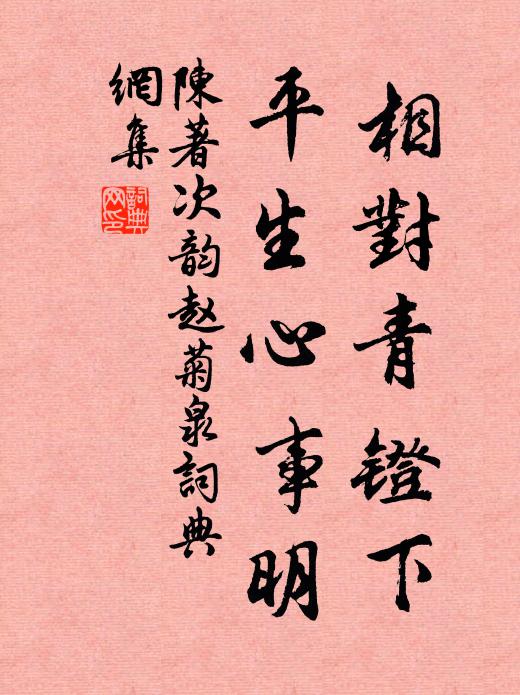 相對青鐙下
平生心事明
陳著次韵赵菊泉詞典
網集
詞典
网印